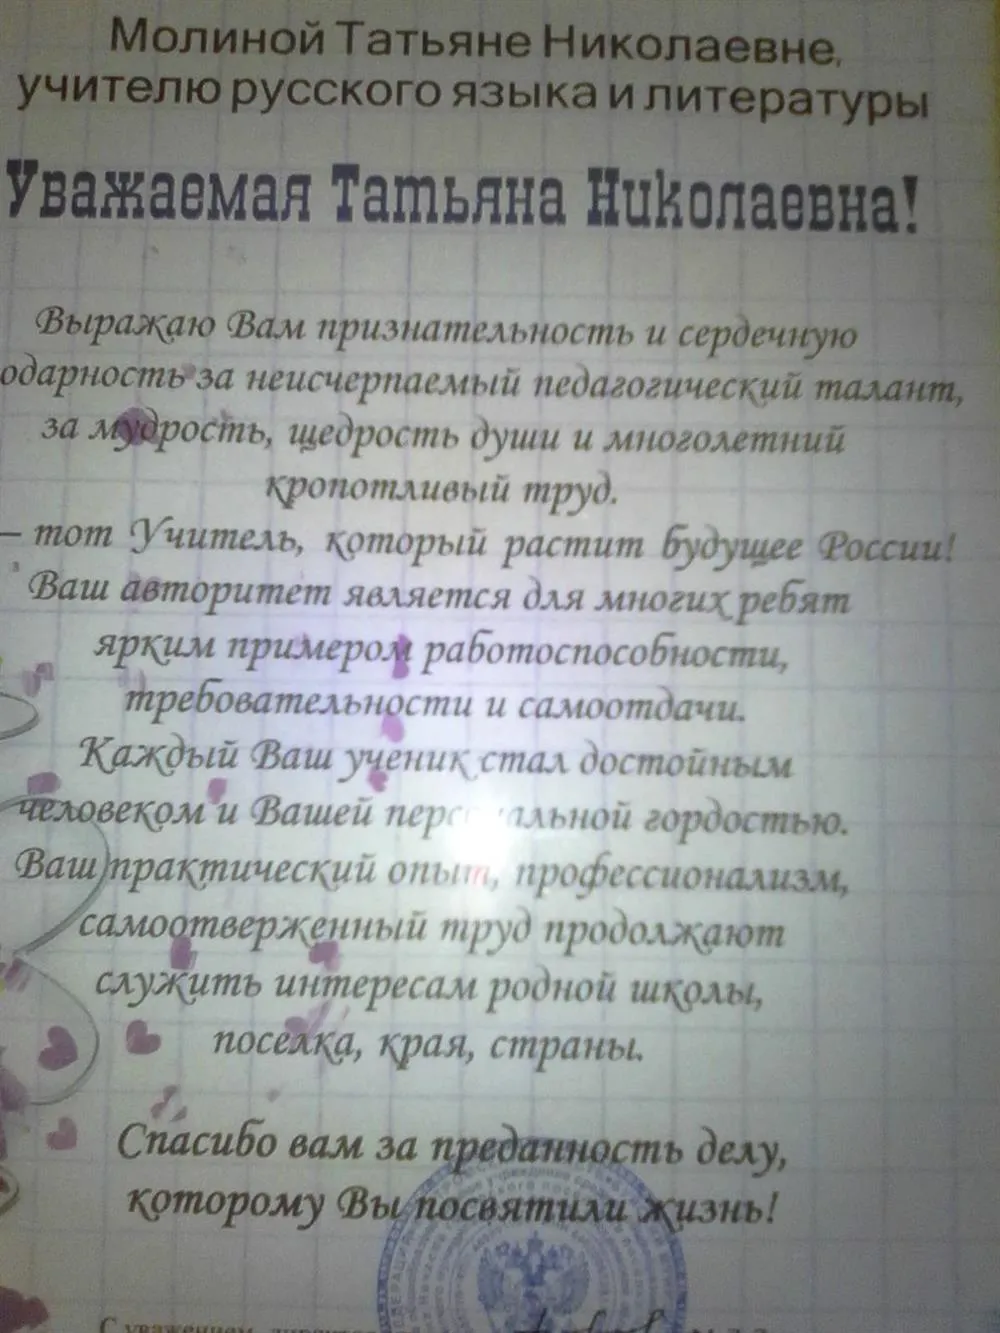 Молиной Татьяне Николаевне,
учителю русского языка и литературы
Уважаемая Татьяна Николаевна!
Выражаю Вам признательность и сердечную
одарность за неисчерпаемый педагогический талант,
за мудрость, щедрость души и многолетний
кропотливый труд.
– тот Учитель, который растит будущее России!
Ваш авторитет является для многих ребят
ярким примером работоспособности,
требовательности и самоотдачи.
Каждый Ваш ученик стал достойным
человеком и Вашей персональной гордостью.
Ваш практический опыт, профессионализм,
самоотверженный труд продолжают
служить интересам родной школы,
поселка, края, страны.
Спасибо вам за преданность делу,
которому Вы посвятили жизнь!
С уважением,